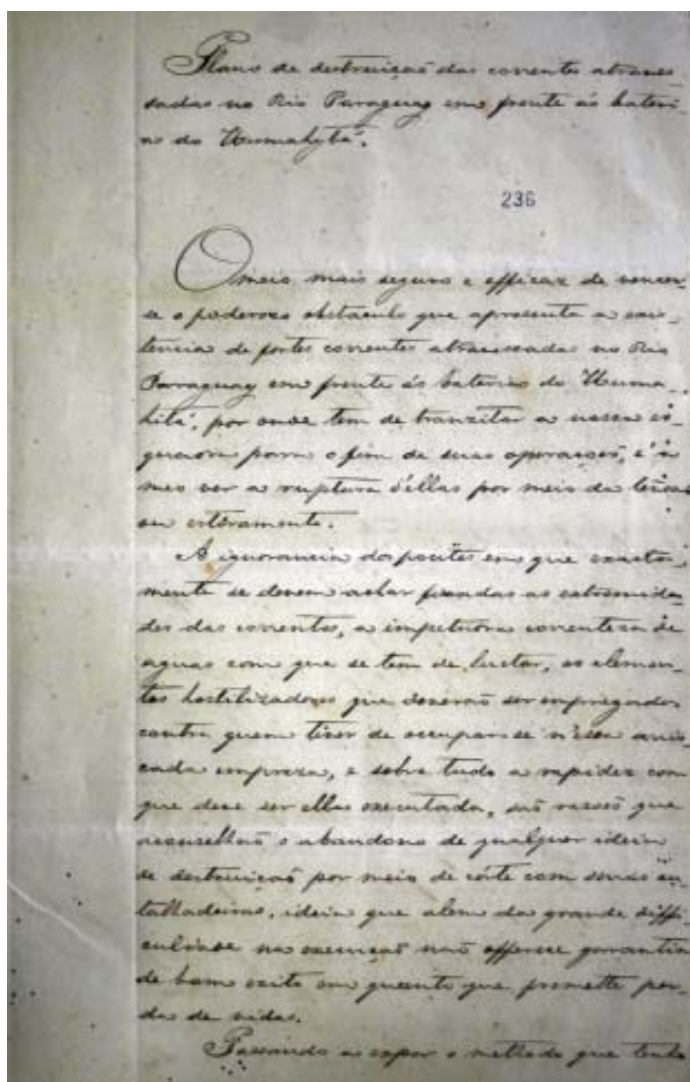 Plano de destruiçaõ das correntes atraves
sadas no Rio Paraguay em frente ás bateri-
as do Humahytá.
236
O meio mais seguro e efficaz de vencer-
se o poderoso obstaculo que apresenta a exis-
tencia de fortes correntes atravessadas no Rio
Parraguay em frente ás baterias do Huma-
hitá, por onde tem de tranzitar a nossa es-
quadra para o fim de suas operaçoes, é a
meo ver a ruptura d'ellas por meio da
ou estiramento.
A ignorancia dos pontos em que exacta-
mente se devem achar fixadas as extremida-
des das correntes, a impetuosa correnteza de
aguas com que se tem de luctar, os elemen-
tos hostilizadores que deveraõ ser empregados
contra quem tiver de occupar-se n'essa arris-
cada empreza, e sobre tudo a rapidez com
que deve ser ella executada, saõ rasoẽs que
aconselhaõ o abandono de qualquer ideia
de destruiçaõ por meio de córte com
talhadeiras, ideia que alem da grande diffi-
culdade na execuçaõ naõ offerece garantia
de bom exito em quanto que promette per-
da de vidas.
Passando a expor o methodo que tenho